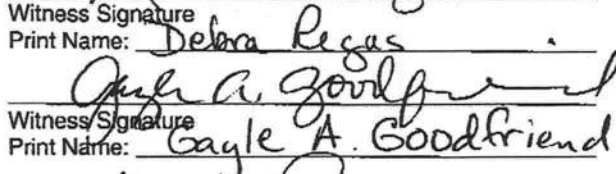 Witness Signature
Print Name: Debra Regas
Gayle A. Goodfriend
Witness Signature
Print Name: Gayle A. Goodfriend